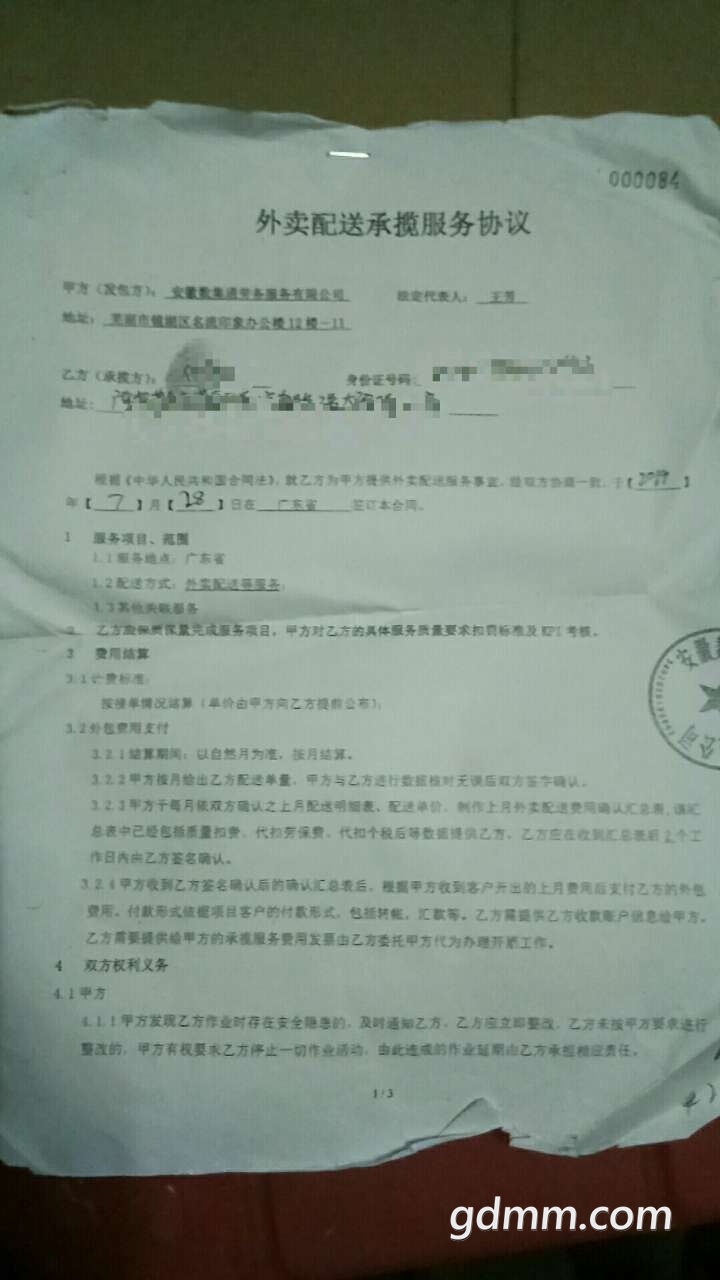 000084
外卖配送承揽服务协议
甲方（发包方）： 安徽数集通劳务服务有限公司 法定代表人： 王芳
地址： 芜湖市镜湖区名流印象办公楼12楼-11
乙方（承揽方）： 身份证号码：
地址：
根据《中华人民共和国合同法》，就乙方为甲方提供外卖配送服务事宜，经双方协商一致，于【 】
年【 7 】月【 28 】日在 广东省 签订本合同。
1 服务项目、范围
1.1服务地点：广东省
1.2配送方式：外卖配送等服务；
1.3其他关联服务
2 乙方应保质保量完成服务项目，甲方对乙方的具体服务质量要求扣罚标准及KPI考核。
3 费用结算
3.1计费标准：
按接单情况结算（单价由甲方向乙方提前公布）；
3.2外包费用支付
3.2.1结算期间：以自然月为准，按月结算。
3.2.2甲方按月给出乙方配送单量，甲方与乙方进行数据核对无误后双方签字确认。
3.2.3甲方于每月依双方确认之上月配送明细表、配送单价，制作上月外卖配送费用确认汇总表，该汇
总表中已经包括质量扣费，代扣劳保费，代扣个税后等数据提供乙方，乙方应在收到汇总表后2个工
作日内由乙方签名确认。
3.2.4甲方收到乙方签名确认后的确认汇总表后，根据甲方收到客户开出的上月费用后支付乙方的外包
费用。付款形式依据项目客户的付款形式，包括转帐，汇款等。乙方需提供乙方收款账户信息给甲方。
乙方需要提供给甲方的承揽服务费用发票由乙方委托甲方代为办理开票工作。
4 双方权利义务
4.1甲方
4.1.1甲方发现乙方作业时存在安全隐患的，及时通知乙方，乙方应立即整改，乙方未按甲方要求进行
整改的，甲方有权要求乙方停止一切作业活动，由此造成的作业延期由乙方承担相应责任。
1/3
gdmm.com